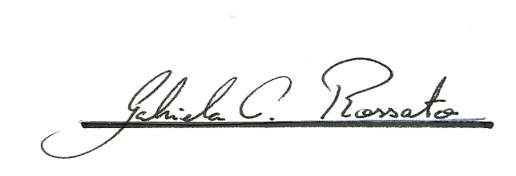 Gabriela C. Rossato